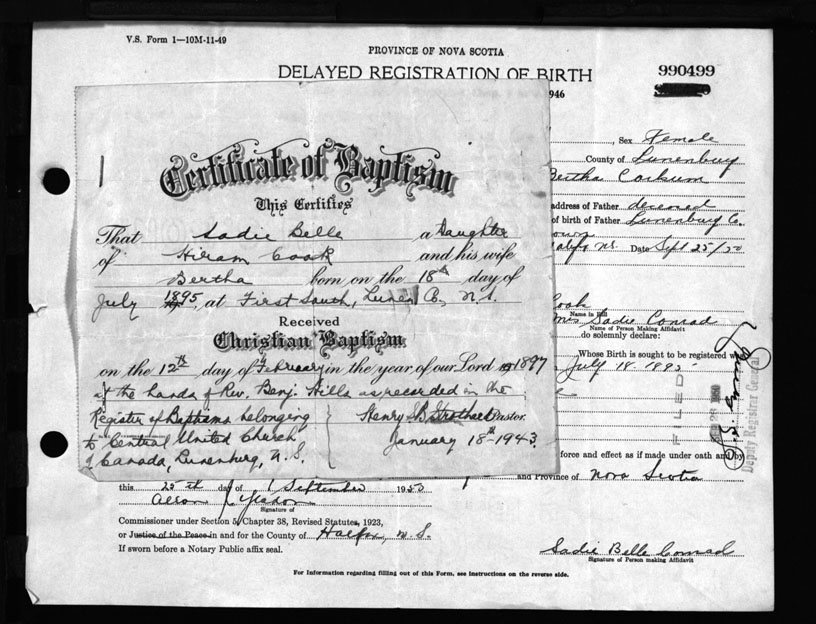 V.S. Form 1—10M-11-49
PROVINCE OF NOVA SCOTIA
DELAYED REGISTRATION OF BIRTH
990499
946
, Sex Female
County of Lunenburg
Bertha Corkum
address of Father deceased
of birth of Father Lunenburg Co.
Date Sept 25/50
Certificate of Baptism
This Certifies
That Sadie Belle a Daughter
of Hiram Cook and his wife
Bertha born on the 18th day of
July 1895, at First South, Lunen Co., N.S.
Received
Christian Baptism
on the 12th day of February in the year of our Lord 1897
at the hands of Rev. Benj. Hills as recorded in the
Register of Baptisms belonging
to Central United Church
of Canada, Lunenburg, N.S.
Henry Pastor.
January 18th 1943.
Cook
Name in full
Mrs Sadie Conrad
Name of Person Making Affidavit
do solemnly declare:
Whose Birth is sought to be registered w
July 18 1895
FILED
Deputy Registrar General
force and effect as if made under oath and by
this 25th day of September 1950
and Province of Nova Scotia
Signature of
Commissioner under Section 5, Chapter 38, Revised Statutes, 1923,
or Justice of the Peace in and for the County of Halifax, N.S.
If sworn before a Notary Public affix seal.
Sadie Belle Conrad
Signature of Person making Affidavit
For Information regarding filling out of this Form, see instructions on the reverse side.